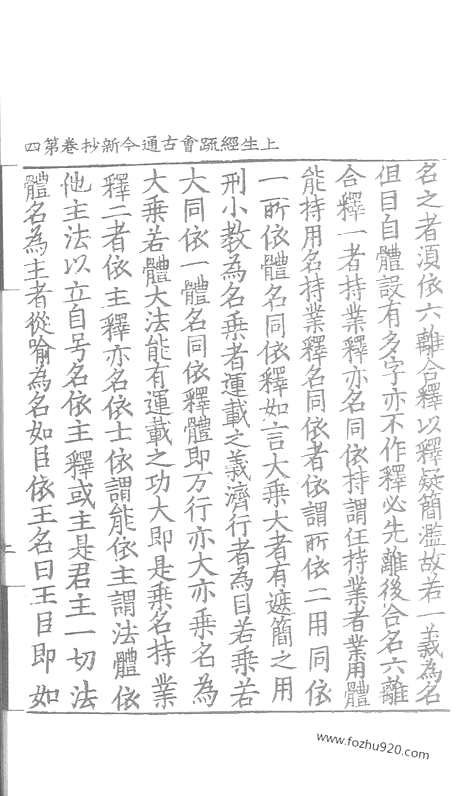 上生經疏會古通今新抄卷第四
名之者須依六離合釋以釋疑簡濫故若一義為名
但目自體設有多字亦不作釋必先離後合名六離
合釋一者持業釋亦名同依持謂任持業者業用體
能持用名持業釋名同依者依謂所依二用同依
一所依體名同依釋如言大乘大者有遮簡之用
刑小教為名乘者運載之義濟行者為目若乘若
大同依一體名同依釋體即万行亦大亦乘名為
大乘若體大法能有運載之功大即是乘名持業
釋二者依主釋亦名依士依謂能依主謂法體依
他主法以立自号名依主釋或主是君主一切法
體名為主者從喻為名如臣依王名曰王臣即如
www.fozhu920.com